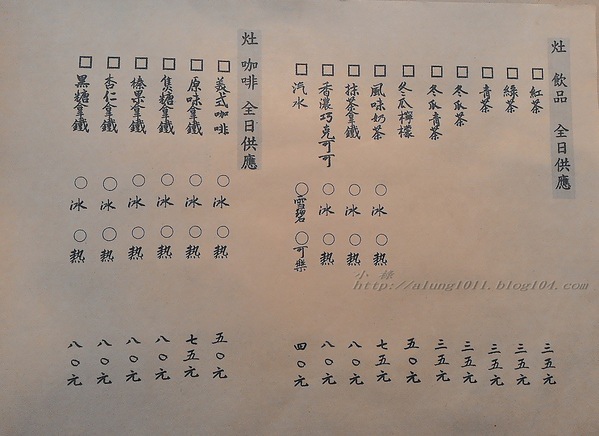 灶 飲品 全日供應
□紅茶 三五元
□綠茶 三五元
□青茶 三五元
□冬瓜茶 三五元
□冬瓜青茶 三五元
□冬瓜檸檬 五〇元
□風味奶茶 ○冰 ○热 七五元
□抹茶拿鐵 ○冰 ○热 八〇元
□香濃巧克可可 ○冰 ○热 八〇元
□汽水 ○雪碧 ○可樂 四〇元
灶 咖啡 全日供應
□義式咖啡 ○冰 ○热 五〇元
□原味拿鐵 ○冰 ○热 七五元
□焦糖拿鐵 ○冰 ○热 八〇元
□榛果拿鐵 ○冰 ○热 八〇元
□杏仁拿鐵 ○冰 ○热 八〇元
□黑糖拿鐵 ○冰 ○热 八〇元
http://alung1011.blog104.com